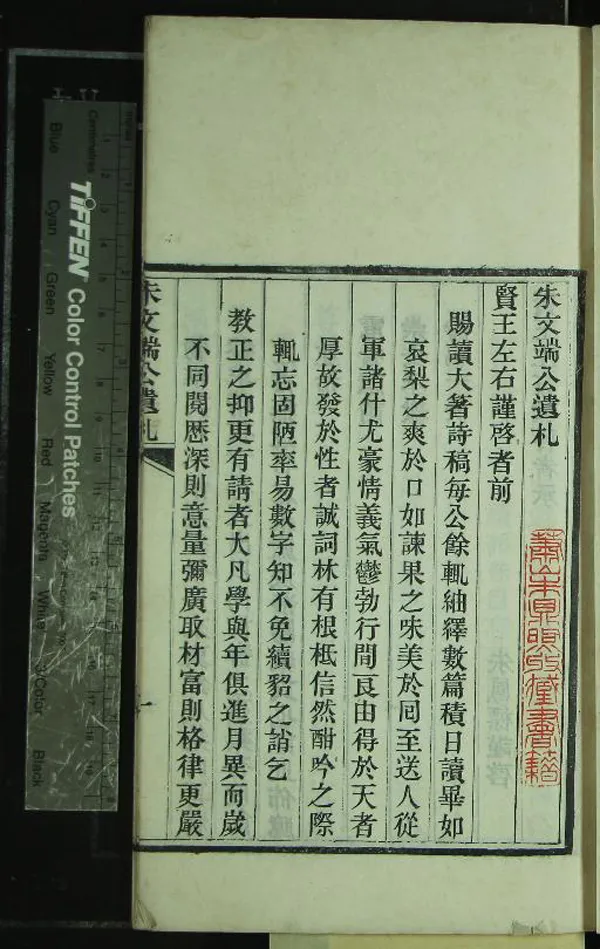 朱文端公遺札
賢王左右謹啓者前
賜讀大著詩稿每公餘輒紬繹數篇積日讀畢如
哀梨之爽於口如諫果之味美於囘至送人從
軍諸什尤豪情義氣鬱勃行間良由得於天者
厚故發於性者誠詞林有根柢信然酣吟之際
輒忘固陋率易數字知不免續貂之誚乞
教正之抑更有請者大凡學與年俱進月異而歲
不同閱歷深則意量彌廣取材富則格律更嚴
朱文端公遺札
一
蕭山朱鼎煦收藏書籍
TIFFEN Color Control Patches
Centimetres
Blue
Cyan
Green
Yellow
Red
Magenta
White
3/Color
Black